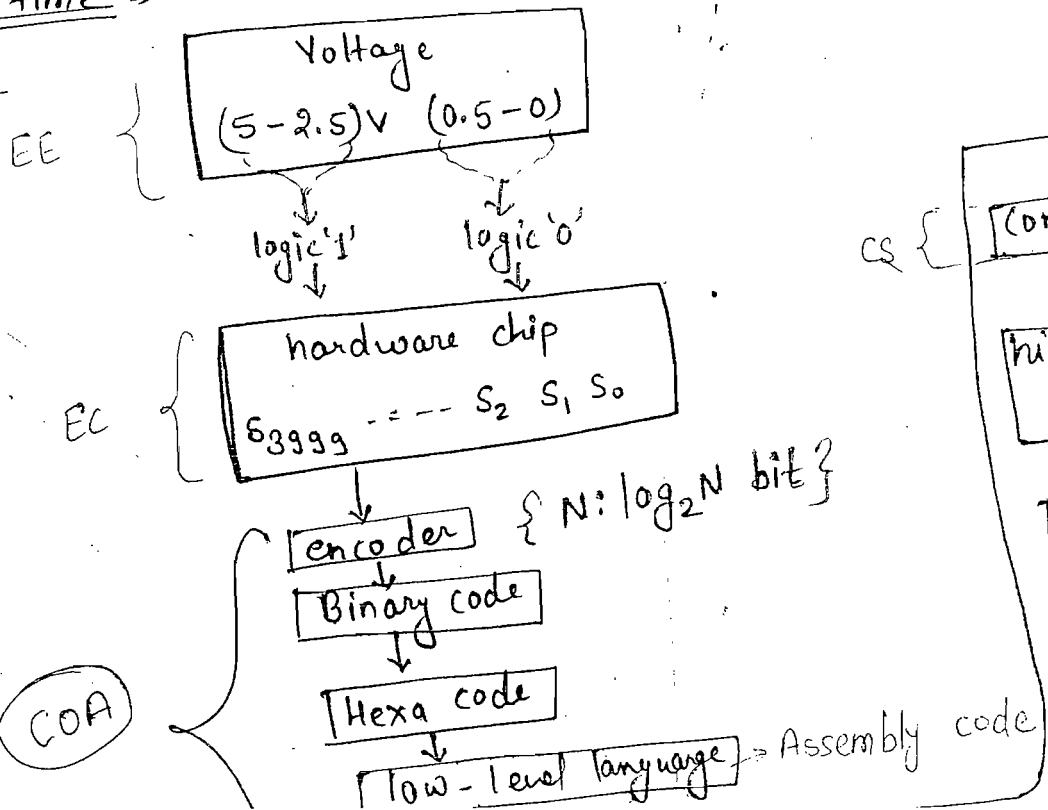 time
Voltage
EE
(5-2.5)V (0.5-0)
logic '1' logic '0'
CS
hardware chip
EC
S3999 ---- S2 S1 S0
encoder { N: log2N bit }
Binary code
COA
Hexa code
low-level language → Assembly code